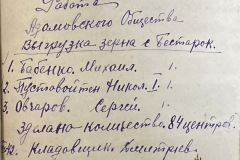 Работа
Адамовского Общества
Выгрузка зерна с Бестарок.
1. Бабенко. Михаил. 1.
2. Пустовойтен Никол. I. 1
3. Овчаров. Сергей. 1.
Зделана количество. 84 центров.
Кладовщик. Дмитриев.